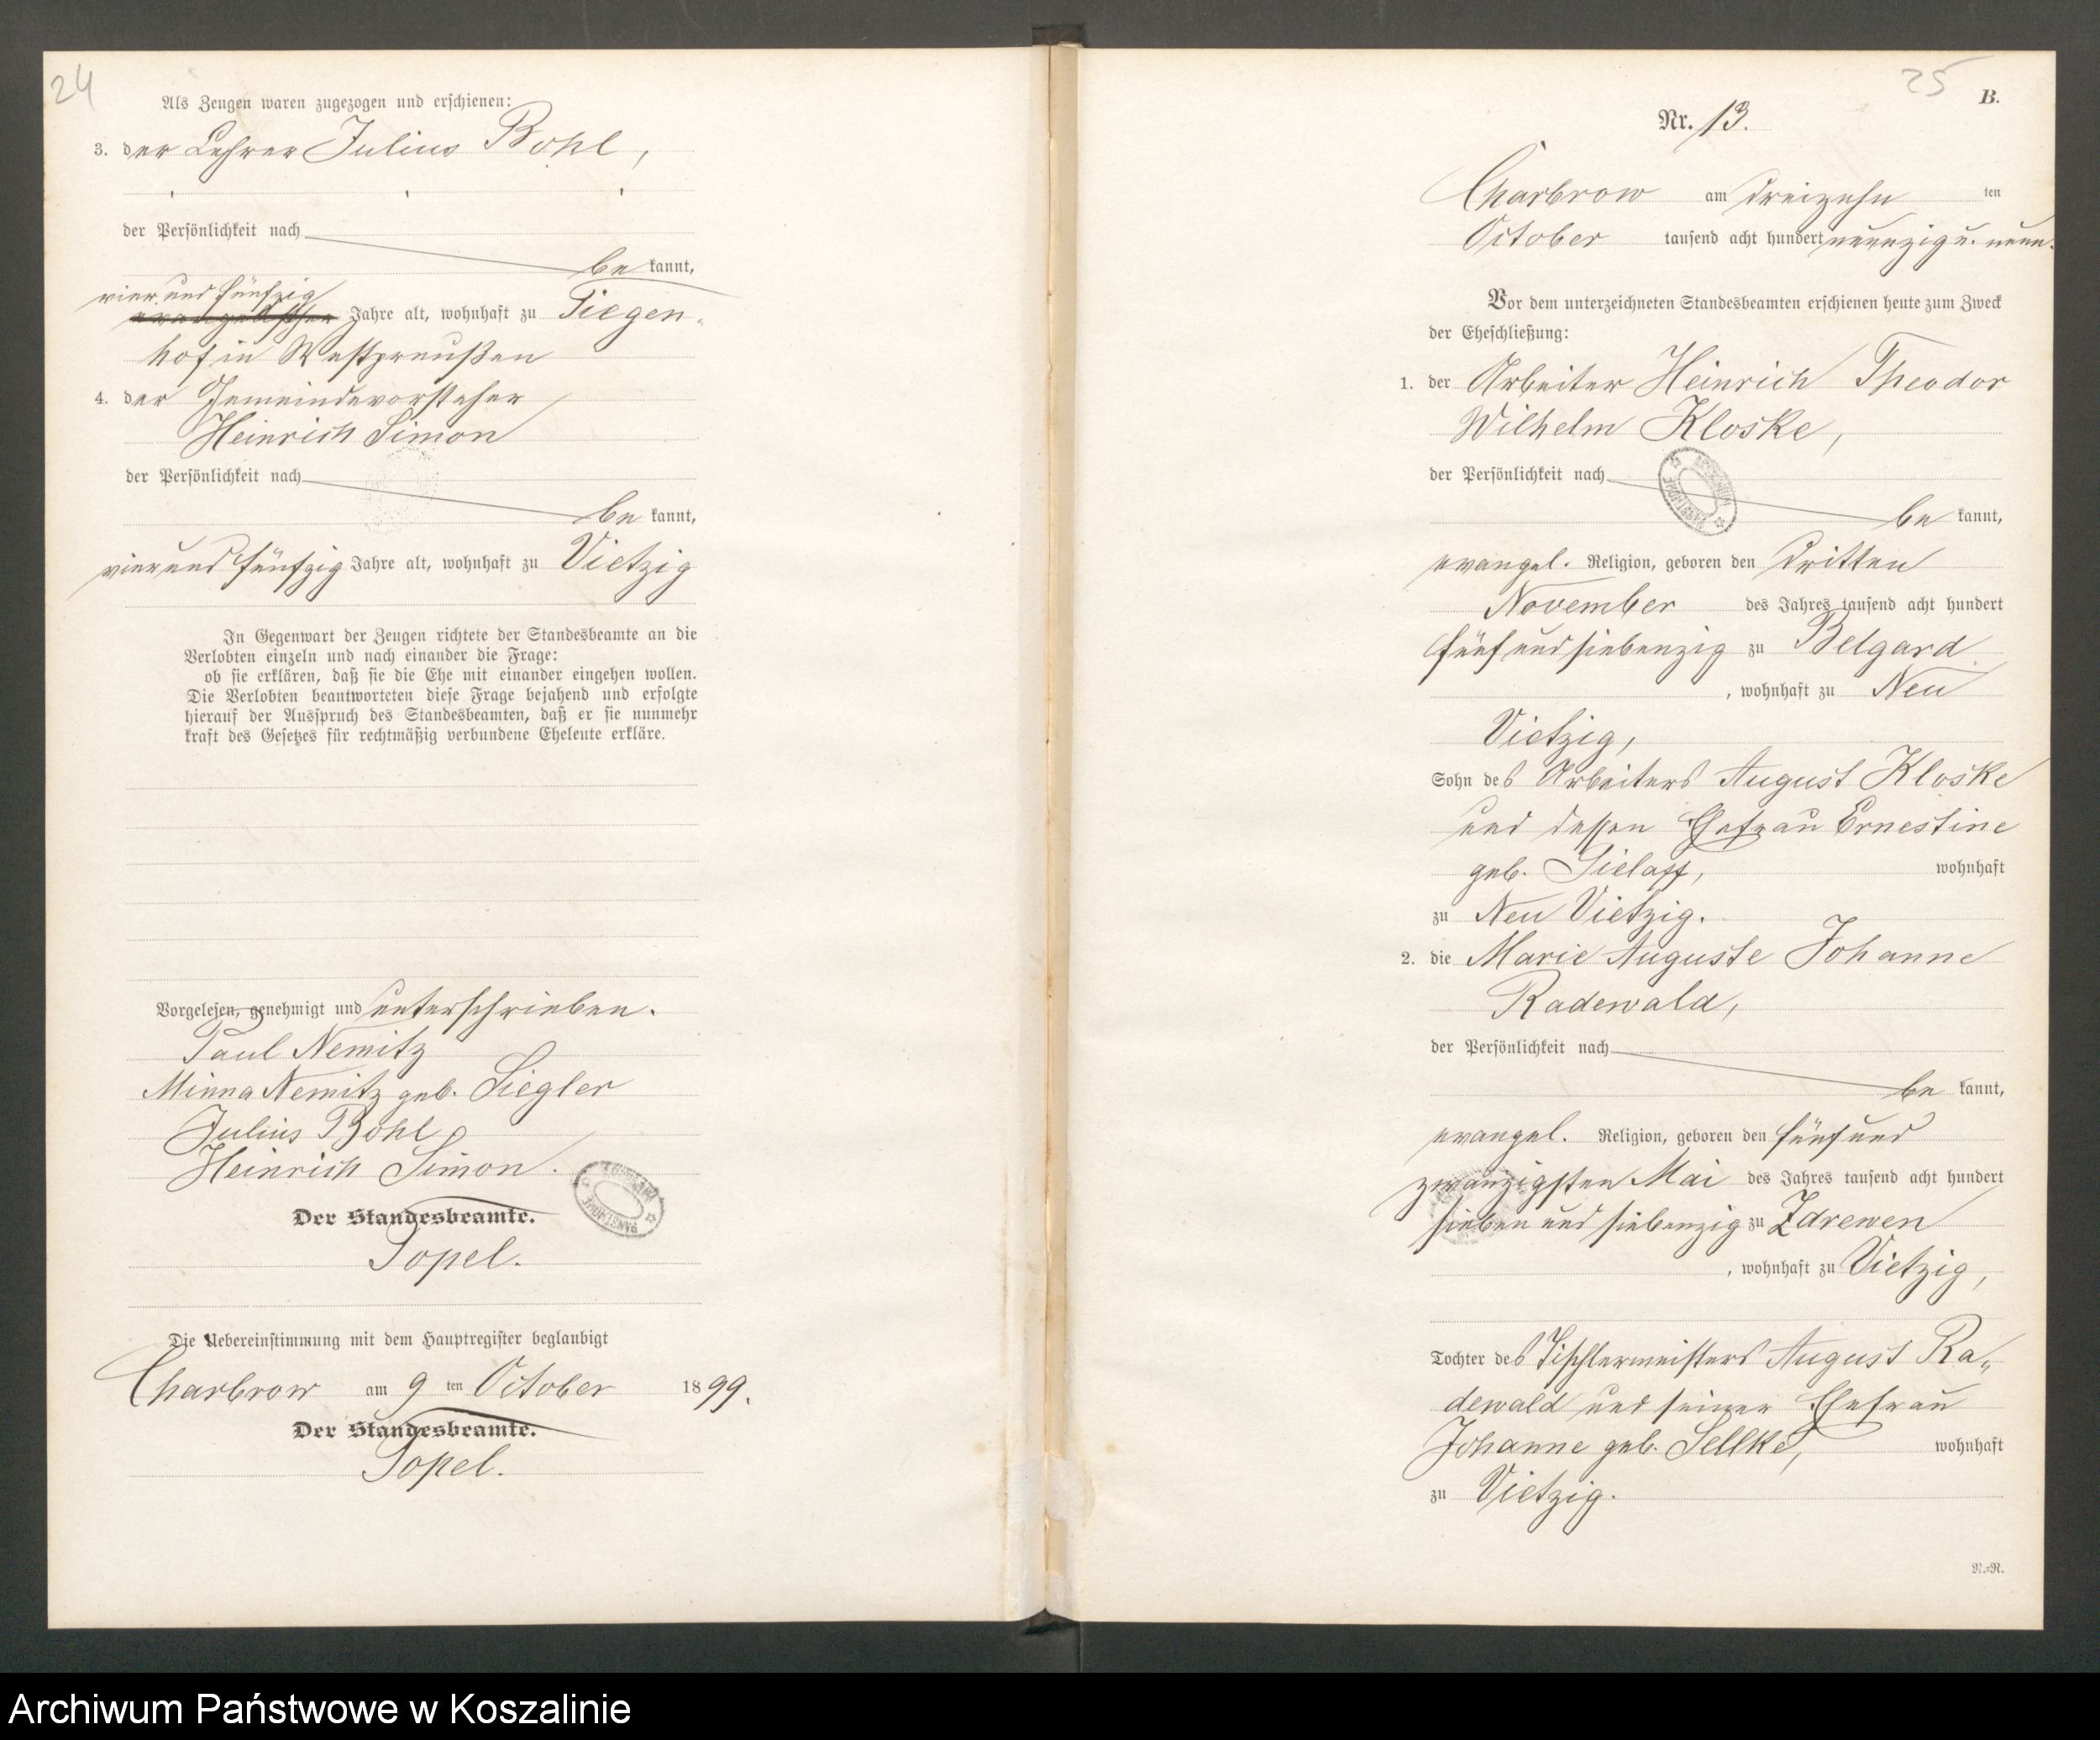 24
Als Zeugen waren zugezogen und erschienen:
3. der Lehrer Julius Bohl,
der Persönlichkeit nach
be kannt,
vier und fünfzig
Jahre alt, wohnhaft zu Tiegen-
hof in Westpreußen
4. der Gemeindevorsteher
Heinrich Simon
der Persönlichkeit nach
be kannt,
vier und fünfzig Jahre alt, wohnhaft zu Vietzig
In Gegenwart der Zeugen richtete der Standesbeamte an die
Verlobten einzeln und nach einander die Frage:
ob sie erklären, daß sie die Ehe mit einander eingehen wollen.
Die Verlobten beantworteten diese Frage bejahend und erfolgte
hierauf der Ausspruch des Standesbeamten, daß er sie nunmehr
kraft des Gesetzes für rechtmäßig verbundene Eheleute erkläre.
Vorgelesen, genehmigt und unterschrieben.
Paul Nemitz
Minna Nemitz geb. Siegler
Julius Bohl
Heinrich Simon.
Der Standesbeamte.
Popel.
Die Uebereinstimmung mit dem Hauptregister beglaubigt
Charbrow am 9 ten October 1899.
Der Standesbeamte.
Popel.
25
B.
Nr. 13.
Charbrow am dreizehn ten
October tausend acht hundert neunzig u. neun.
Vor dem unterzeichneten Standesbeamten erschienen heute zum Zweck
der Eheschließung:
1. der Arbeiter Heinrich Theodor
Wilhelm Kloske,
der Persönlichkeit nach
be kannt,
evangel. Religion, geboren den dritten
November des Jahres tausend acht hundert
fünf und siebenzig zu Belgard
, wohnhaft zu Neu
Vietzig,
Sohn des Arbeiters August Kloske
und dessen Ehefrau Ernestine
geb. Sielaff, wohnhaft
zu Neu Vietzig.
2. die Marie Auguste Johanne
Radewald,
der Persönlichkeit nach
be kannt,
evangel. Religion, geboren den fünf und
zwanzigsten Mai des Jahres tausend acht hundert
sieben und siebenzig zu Zdrewen
, wohnhaft zu Vietzig,
Tochter des Tischlermeisters August Ra-
dewald und seiner Ehefrau
Johanne geb. Sellke, wohnhaft
zu Vietzig.
N.=N.
Archiwum Państwowe w Koszalinie